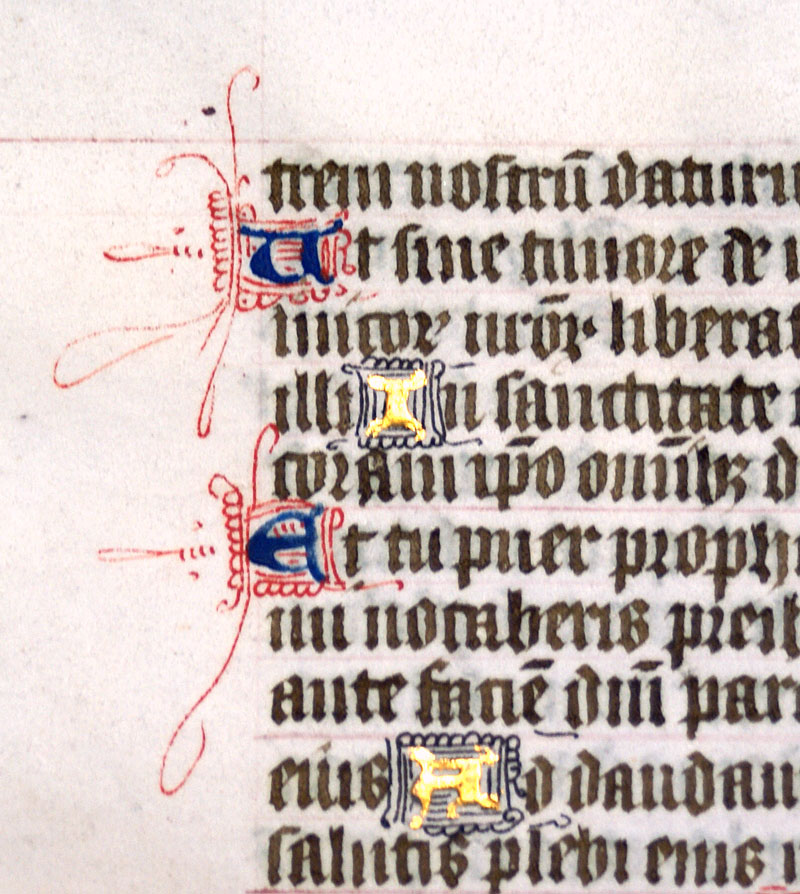 trem nostrū daturu
Ut sine timore de i
imicor nrōꝝ liberat
illi In sanctitate
coram ipō omībꝫ d
Et tu puer proph
mi vocaberis preib
ante faciē dnī par
eius Ad dandam
salutis plebi eius